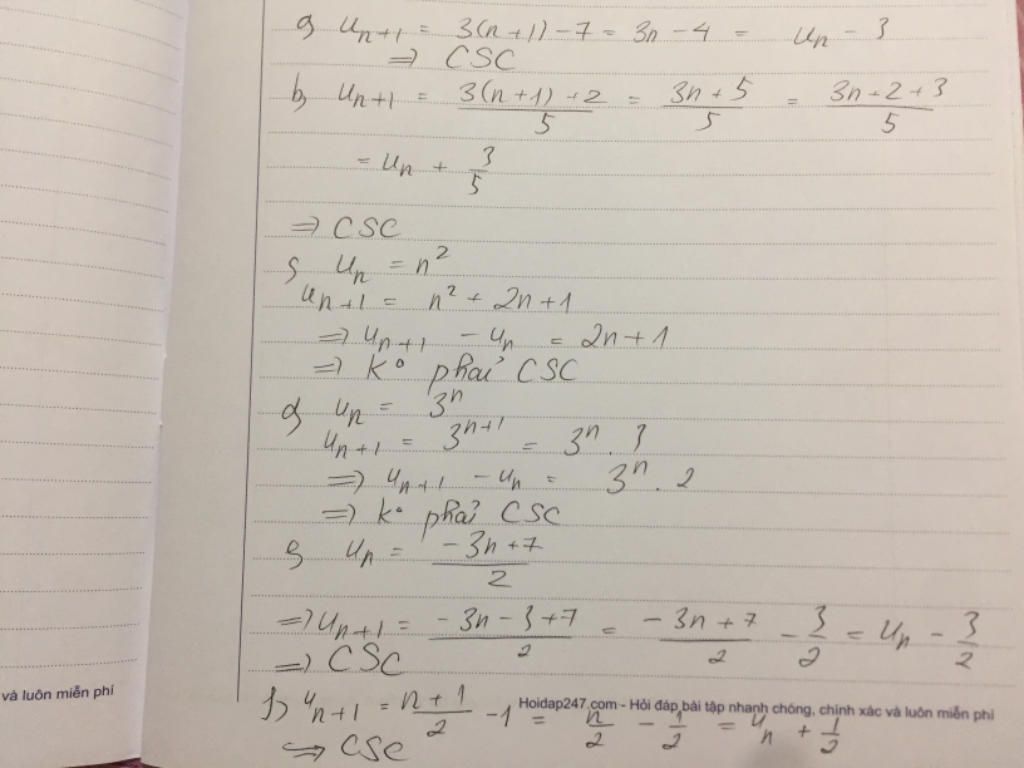 a) u_{n+1} = 3(n+1) - 7 = 3n - 4 = u_n - 3
=> CSC
b) u_{n+1} = \frac{3(n+1)+2}{5} = \frac{3n+5}{5} = \frac{3n+2+3}{5}
= u_n + \frac{3}{5}
=> CSC
c) u_n = n^2
u_{n+1} = n^2 + 2n + 1
=> u_{n+1} - u_n = 2n + 1
=> k° phải CSC
d) u_n = 3^n
u_{n+1} = 3^{n+1} = 3^n . 3
=> u_{n+1} - u_n = 3^n . 2
=> k° phải CSC
e) u_n = \frac{-3n+7}{2}
=> u_{n+1} = \frac{-3n-3+7}{2} = \frac{-3n+7}{2} - \frac{3}{2} = u_n - \frac{3}{2}
=> CSC
f) u_{n+1} = \frac{n+1}{2} - 1 = \frac{n}{2} - \frac{1}{2} = u_n + \frac{1}{2}
=> CSC
và luôn miễn phí
Hoidap247.com - Hỏi đáp bài tập nhanh chóng, chính xác và luôn miễn phí